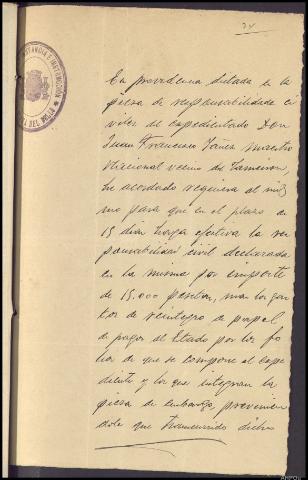 En providencia dictada en la
pieza de responsabilidade ci
viles del expedientado Don
Juan Francisco maestro
Nacional vecino de Lameiron,
he acordado requiera al mis
mo para que en el plazo de
15 dias haga efectiva la res
ponsabilidad civil declarada
en la misma por importe
de 15.000 pesetas, mas los gas
tos de reintegro de papel
de pagos al Estado por los fo
lios de que se compone el expe
diente y los que integran la
pieza de embargo, previnien
dole que transcurrido dicho